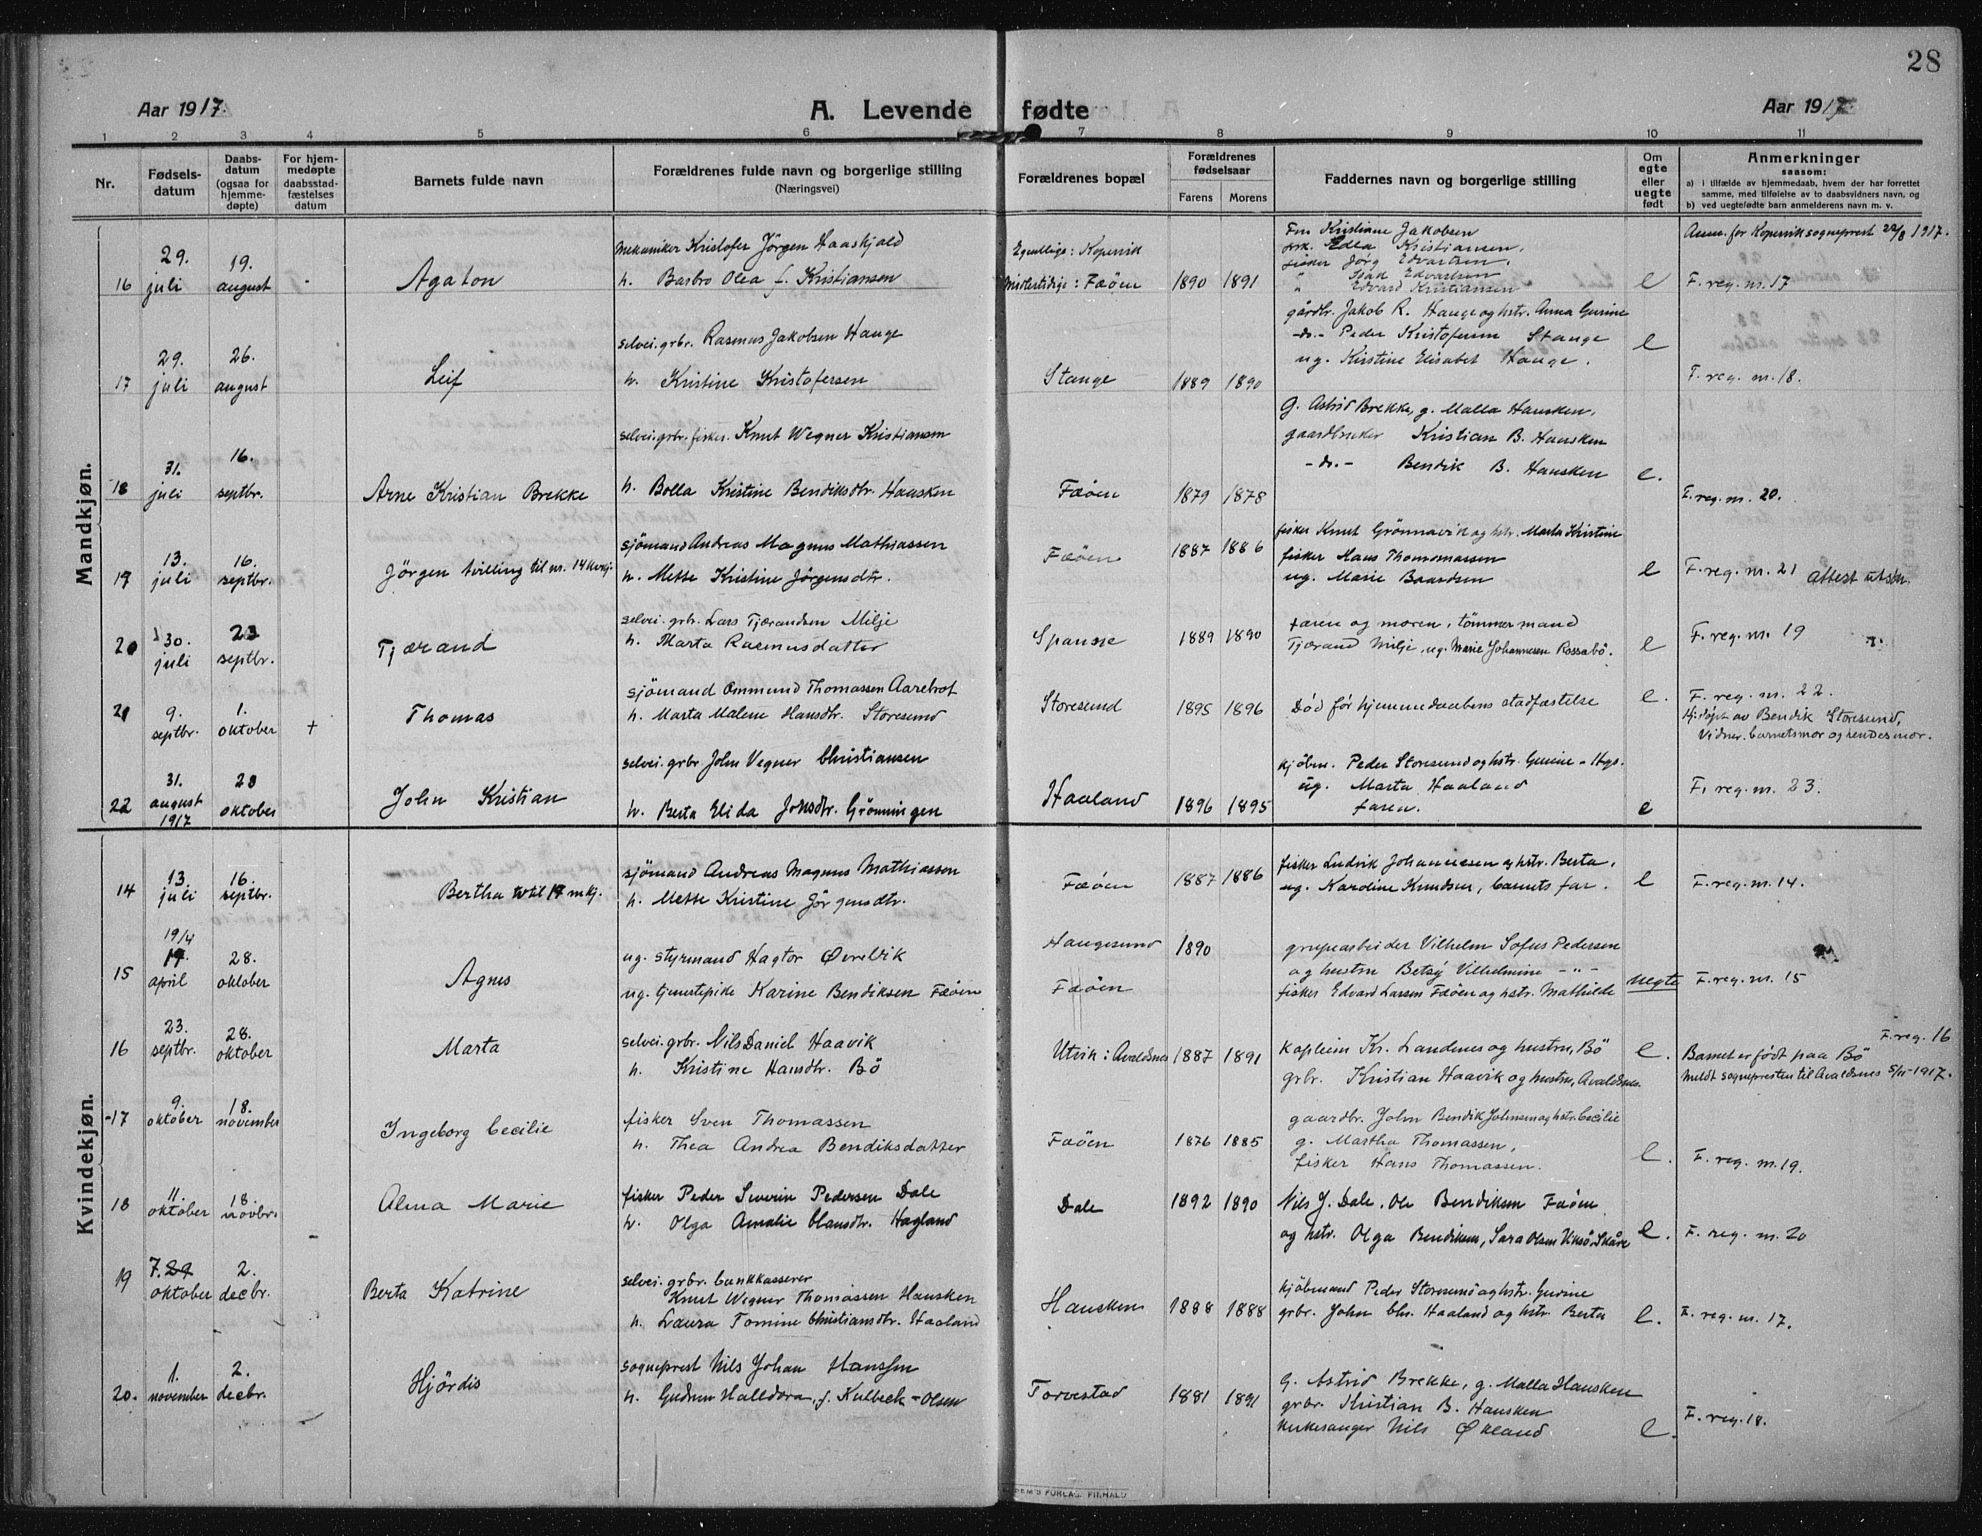 28
Aar 1917.
A. Levende fødte
Aar 1917
1 2 3 4 5 6 7 8 9 10 11
Nr.
Fødsels-
datum
Daabs-
datum
(ogsaa for
hjemme-
døpte)
For hjem-
medøpte
daabsstad-
fæstelses
datum
Barnets fulde navn
Forældrenes fulde navn og borgerlige stilling
(Næringsvei)
Forældrenes bopæl
Forældrenes
fødselsaar
Farens Morens
Faddernes navn og borgerlige stilling
Om
egte
eller
uegte
født
Anmerkninger
saasom:
a) i tilfælde av hjemmedaab, hvem der har forrettet
samme, med tilføielse av to daabsvidners navn, og
b) ved uegtefødte barn anmelderens navn m. v.
Mandkjøn.
16 29. juli 19. august Agaton
Mekaniker Kristofer Jörgen Haaskjold
h. Barbro Olea f. Kristiansen
Egentlige: Kopervik
Midlertidige: Fæöen 1890 1891
Fru Kristiane Jakobsen
Edla Kristiansen,
fisker Jörg Edvartsen,
" Isak Edvartsen
" Edvard Kristiansen
e
Anm. for Kopervik sogneprest 22/8 1917.
F. reg. nr. 17
17 29. juli 26. august Leif
selvei. grbr. Rasmus Jakobsen Hauge
h. Kristine Kristofersen
Stange 1889 1890
gårdbr. Jakob R. Hauge og hstr. Anna Gurine
-do- Peder Kristofersen Stange
ug. Kristine Elisabet Hauge.
e
F. reg. nr. 18.
18 31. juli 16. septbr. Arne Kristian Brekke
selvei. grbr. fisker. Knut Wegner Kristiansen
h. Bolla Kristine Bendiksdtr. Haasken
Fæöen 1879 1878
g. Astrid Brekke, g. Malla Hausken,
gaardbruker Kristian B. Hausken
-do- Bendik B. Hausken
e.
F. reg. nr. 20.
19 13. juli 16. septbr. Jörgen tvilling til nr. 14 kvkj.
sjömand Andreas Magnus Mathiassen
h. Mette Kristine Jörgensdtr.
Fæöen 1887 1886
fisker Knut Grönnavik og hstr. Marta Kristine
fisker Hans Thommassen
ug. Marie Baardsen
e
F. reg. nr. 21 Attest utskr.
20 30. juli 23 septbr. Tjærand
selvei. grbr. Lars Tjærandsen Milje
h. Marta Rasmusdatter
Spansse 1889 1890
Faren og moren, tömmermand
Tjærand Milje, ug. Marie Johannesen Rossabö.
e
F. reg. nr. 19
21 9. septbr. 1. oktober + Thomas
sjömand Ommund Thomassen Aarebrot
h. Marta Malene Hansdtr. Storesund
Storesund 1895 1896
Död för hjemmedaabens stadfæstelse
e.
F. reg. nr. 22.
Hj.döpt av Bendik Storesund,
Vidner. barnets mor og hendes mor.
22 31. august 1917 20 oktober John Kristian
selvei. grbr John Vegner Christiansen
h. Berta Elida Jonsdtr. Grönningen
Haaland 1896 1895
kjöbm. Peder Storesund og hstr. Gurine - Hgs.
ug. Marta Haaland
faren.
e
F. reg. nr. 23.
Kvindekjøn.
14 13. juli 16. septbr. Bertha tv til 19 mkj.
sjömand Andreas Magnus Mathiassen
h. Mette Kristine Jörgensdtr.
Fæöen 1887 1886
fisker Ludvik Johannesen og hstr. Berta,
ug. Karoline Knudsen, barnets far.
e
F. reg. nr. 14.
15 19/4 19. april 28. oktober Agnes
ug. styrmand Hagtor Överlvik
ug. tjenestepike Karine Bendiksen Fæöen
Haugesund 1890
Fæöen
grubearbeider Vilhelm Sofus Pedersen
og hustru Betsy Vilhelmine -"-
fisker Edvard Larsen Fæöen og hstr. Mathilde
uegte
F. reg. nr. 15
16 23. septbr. 28. oktober Marta
selvei. grbr. Nils Daniel Haavik
h. Kristine Hansdtr. Bö
Utvik: Avaldsnes 1887 1891
kaptein Kr. Landenes og hustru, Bö
grbr. Kristian Haavik og hustru, Avaldsnes.
e.
F. reg. 16
Barnet er födt paa Bö
meldt sognepresten til Avaldsnes 5/11-1917.
17 9. oktober 18. november Ingeborg Cecilie
fisker Sven Thomassen
h. Thea Andrea Bendiksdatter
Fæöen 1876 1885
gaardbr. John Bendik Johnsen og hstr. Cecilie
g. Martha Thomassen,
fisker Hans Thomassen.
e.
F. reg. nr. 19.
18 11. oktober 18. novbr. Alma Marie
fisker Peder Severin Pedersen Dale
h. Olga Amalie Hansdtr. Hagland
Dale 1892 1890
Nils J. Dale, Ole Bendiksen Fæöen
og hstr. Olga Bendiksen, Sara Olsen Viksö, Skåre
e.
F. reg. nr. 20
19 7. 29 oktober 2. decbr. Berta Katrine
selvei. grbr. bankkasserer
Knut Wegner Thomassen Hausken
h. Laura Tomine Christiansdtr. Haaland
Hausken 1888 1888
kjöbmand Peder Storesund og hstr. Gurine
grbr. John Chr. Haaland og hstr. Berta
e.
F. reg. nr. 17.
20. 1. november 2. decbr. Hjördis
sogneprest Nils Johan Hanssen
h. Gudrun Halldora, f. Kulbeck-Olsen
Torvestad 1881 1891
g. Astrid Brekke, g. Malla Hausken
grbr. Kristian B. Hausken
kirkesanger Nils Økland
e.
F. reg. 18.